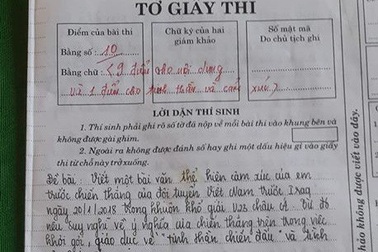 TỜ GIẤY THI
Điểm của bài thi
Chữ ký của hai
giám khảo
Số mật mã
Do chủ tịch ghi
Bằng số : 10
Bằng chữ : (9 điểm cho nội dung
và 1 điểm cho tinh thần và cảm xúc)
LỜI DẶN THÍ SINH
1. Thí sinh phải ghi rõ số tờ đã nộp về mỗi bài thi vào khung bên và
không được gài ghim.
2. Ngoài ra không được đánh số hay ghi một dấu hiệu gì vào giấy
thi từ chỗ này trở xuống.
Đề bài: Viết một bài văn thể hiện cảm xúc của em
trước chiến thắng của đội tuyển Việt Nam trước Iraq
ngày 20/1/2018 trong khuôn khổ giải U23 châu Á. Từ đó
nêu suy nghĩ về ý nghĩa của chiến thắng trên trong việc
khơi gợi, giáo dục về "tinh thần chiến đấu" và
không được viết vào đây.